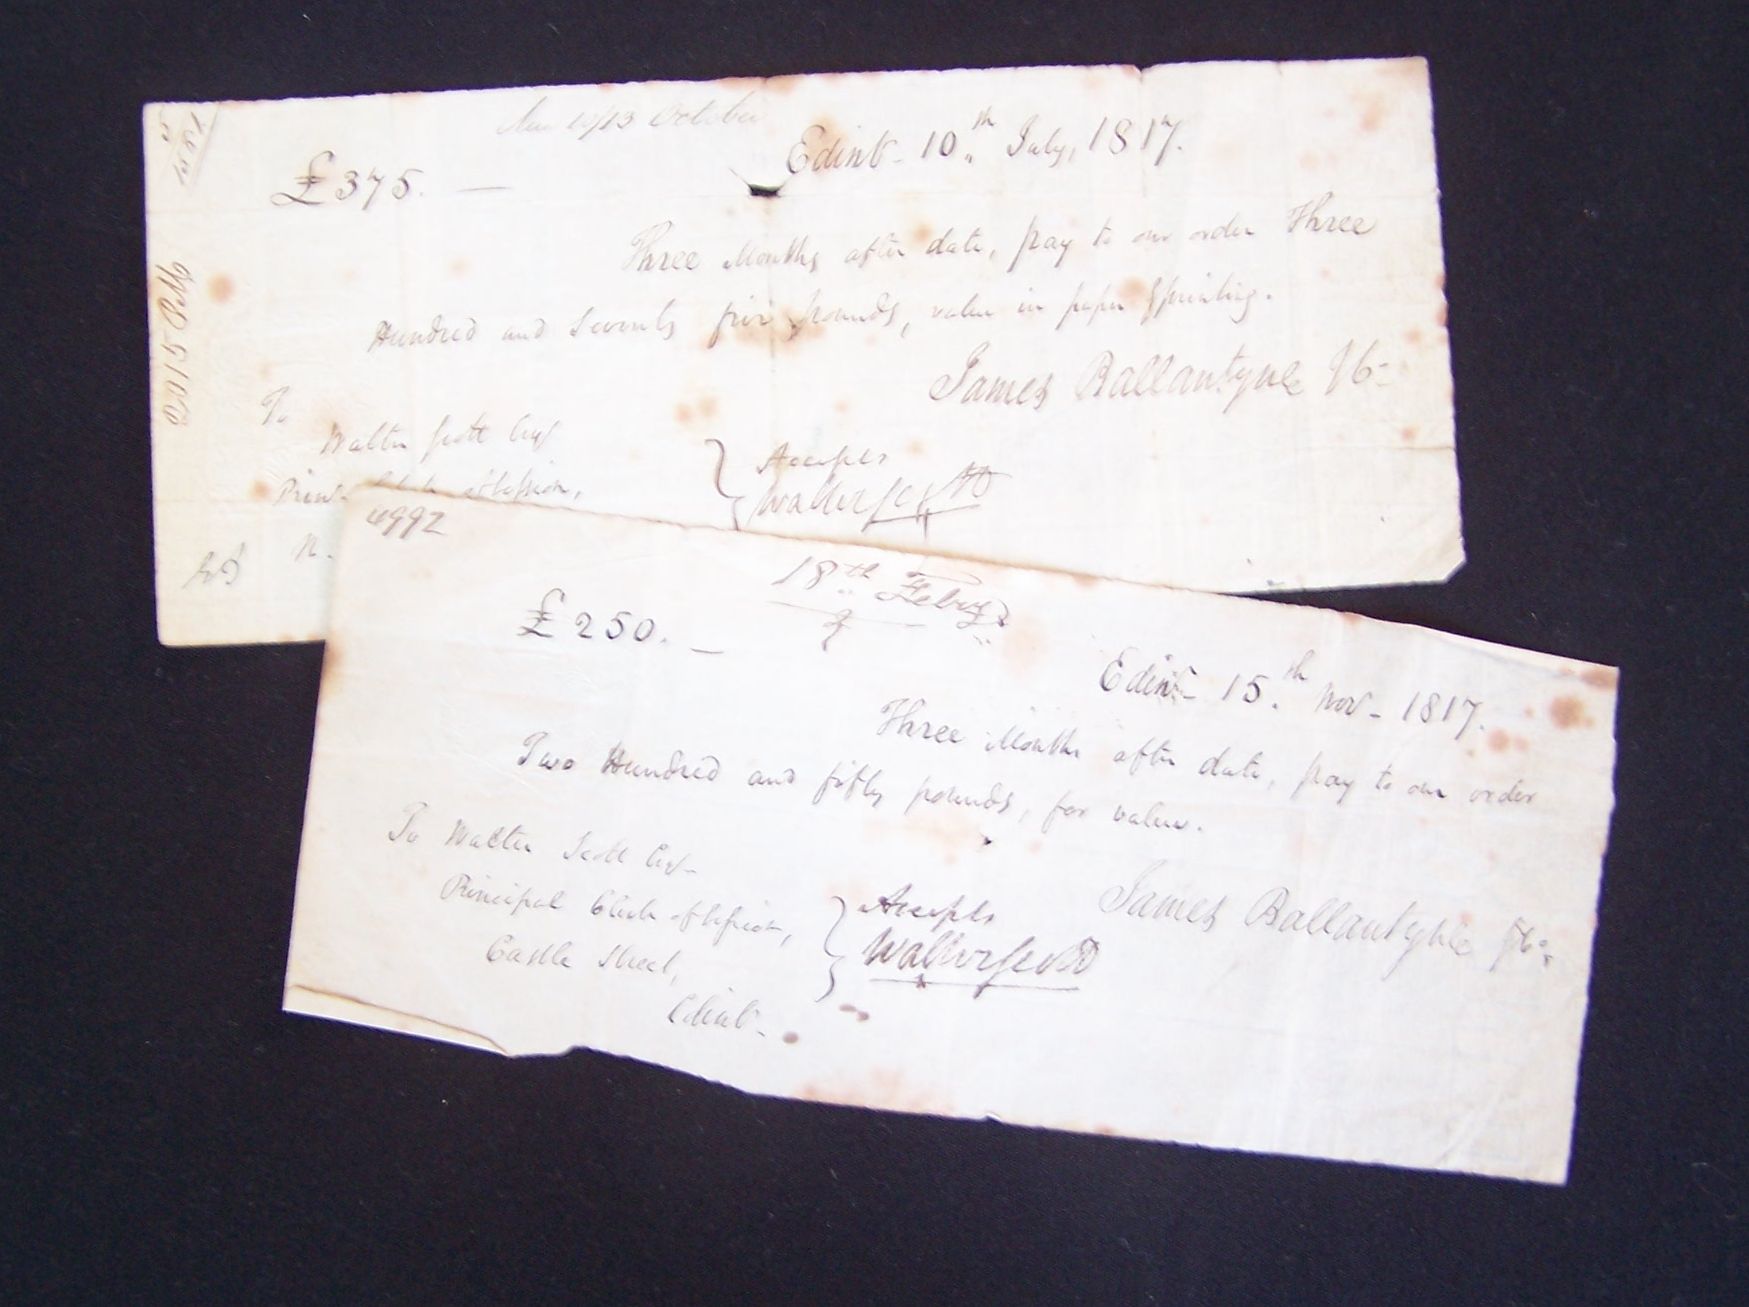 10/13 October
Edinr. 10.th July, 1817.
£375. —
Three Months after date, pay to our order Three
Hundred and Seventy five pounds, value in paper & printing.
James Ballantyne & Co.
To
Walter Scott Esqr
Prin. Clerk of Session,
Accepts
Walter Scott
2015
4992
18th Feby
£250. —
Edinr. 15.th Nov. 1817.
Three Months after date, pay to our order
Two Hundred and fifty pounds, for value.
James Ballantyne & Co.
To Walter Scott Esqr.
Principal Clerk of Session,
Castle Street,
Edinr.
Accepts
Walter Scott